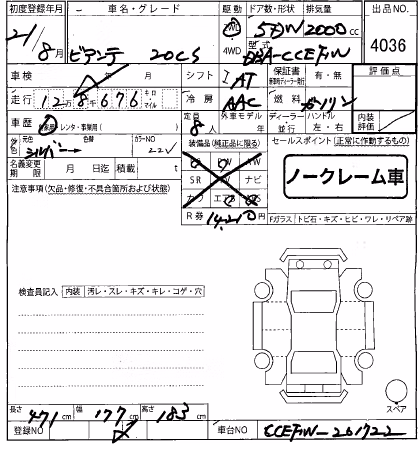 初度登録年月 車名・グレード 駆動 ドア数・形状 排気量 出品NO.
21/8月 ビアンテ 20CS 2WD 4WD 5DW 2000cc 4036
型式 DBA-CCEFW
車検 年 月 シフト IAT 保証書 有・無 評価点
走行 12万8千676 キロ マイル 冷房 AAC 燃料 ガソリン
車歴 自家用 レンタ・事業用( ) 定員 8人 外車モデル 年 ディーラー 並行 ハンドル 左・右 内装評価
色 元色 シルバー 色替 カラーNO 22V 装備品(純正品に限る) セールスポイント(正常に作動するもの)
名義変更期限 月 日迄 積載 t SR ナビ ノークレーム車
注意事項(欠品・修復・不具合箇所および状態)
R券 14,210
Fガラス トビ石・キズ・ヒビ・ワレ・リペア跡
検査員記入 内装 汚レ・スレ・キズ・キレ・コゲ・穴
スペア
長さ 471cm 幅 177cm 高さ 183cm
登録NO 車台NO CCEFW-201722